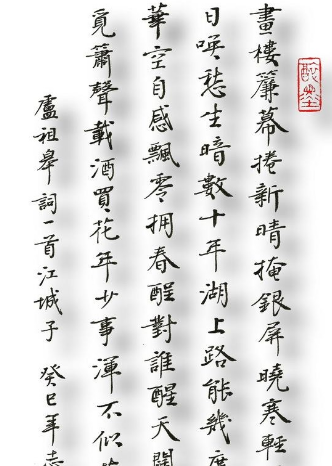 畫樓簾幕捲新晴掩銀屏曉寒輕
日喚愁生暗數十年湖上路能幾度
華空自感飄零拥春醒對誰醒天闊
覓簫聲載酒買花年少事渾不似
盧祖皋詞一首江城子 癸巳年